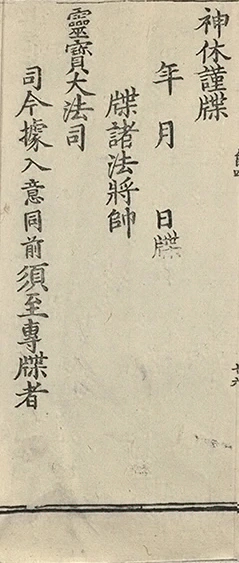 神休謹牒
年 月 日牒
牒諸法將帥
靈寶大法司
司今據入意同前須至專牒者